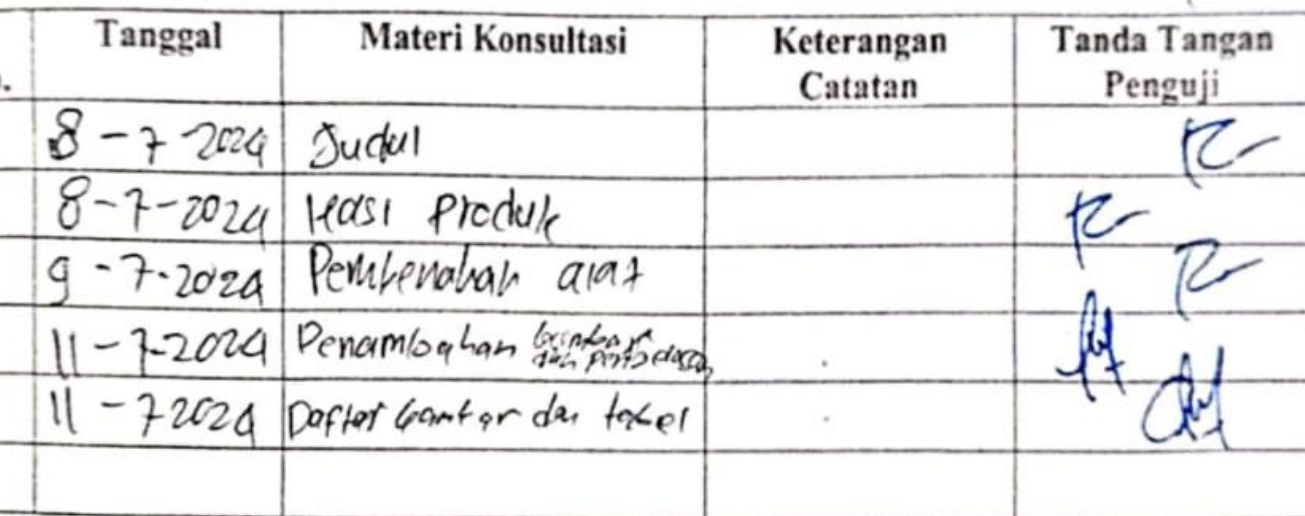 Tanggal Materi Konsultasi Keterangan Catatan Tanda Tangan Penguji
8-7-2024 Judul
8-7-2024 Hasi Produk
9-7-2024 Pembenahan alat
11-7-2024 Penambahan gambar dan
11-7 2024 Daftar Gambar dan tabel